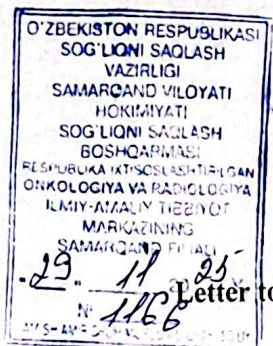 O'ZBEKISTON RESPUBLIKASI
SOG'LIQNI SAQLASH
VAZIRLIGI
SAMARQAND VILOYATI
HOKIMIYATI
SOG'LIQNI SAQLASH
BOSHQARMASI
RESPUBLIKA IXTISOSLASHTIRILGAN
ONKOLOGIYA VA RADIOLOGIYA
ILMIY-AMALIY TIBBIYOT
MARKAZINING
SAMARQAND FILIALI
29 11 20 25
№ 1166
Letter to